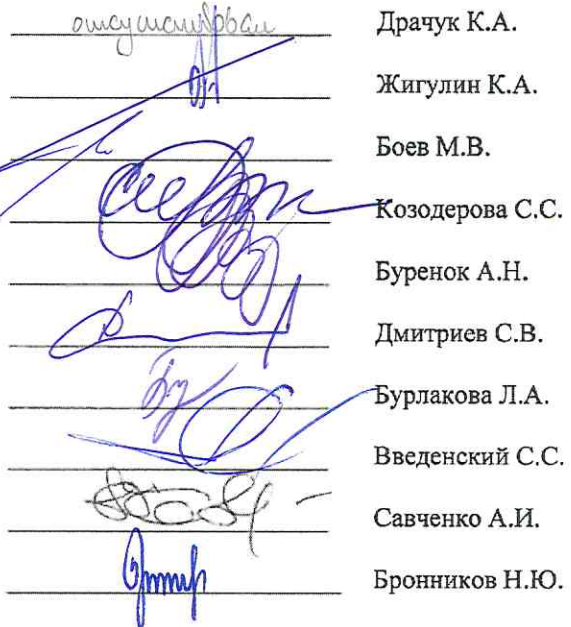 отсутствовал Драчук К.А.
Жигулин К.А.
Боев М.В.
Козодерова С.С.
Буренок А.Н.
Дмитриев С.В.
Бурлакова Л.А.
Введенский С.С.
Савченко А.И.
Бронников Н.Ю.